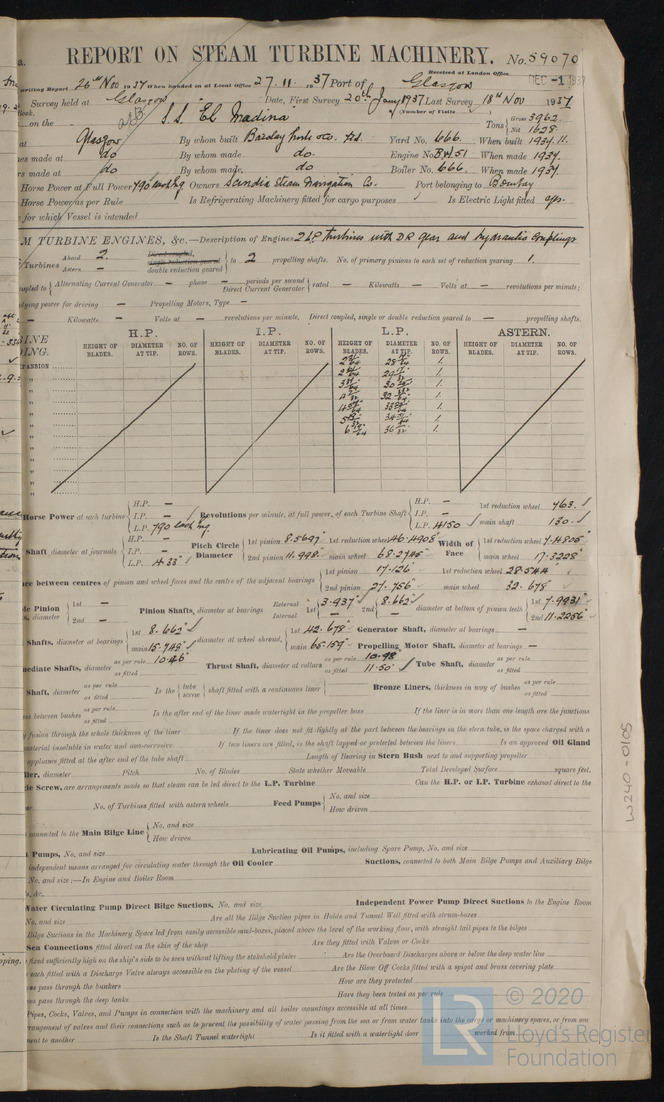 REPORT ON STEAM TURBINE MACHINERY. No. 59070
Received at London Office DEC -1 1937
writing Report 26th Nov 1937 When handed in at Local Office 27.11.1937 Port of Glasgow
Survey held at Glasgow Date, First Survey 20th Jany 1937 Last Survey 18th Nov 1937
(Number of Visits
on the S.S. El Madina Tons { Gross 3962. Net 1628.
at Glasgow By whom built Barclay Curle & Co. Ltd. Yard No. 666. When built 1937.11.
nes made at do By whom made do. Engine No. When made 1937.
rs made at do By whom made do. Boiler No. 666. When made 1937.
Horse Power at Full Power 790 each Eng Owners Scindia Steam Navigation Co. Port belonging to Bombay
Horse Power as per Rule Is Refrigerating Machinery fitted for cargo purposes Is Electric Light fitted yes.
for which Vessel is intended
M TURBINE ENGINES, &c.—Description of Engines 2 L.P. turbines with D.R. gear and hydraulic couplings
Turbines Ahead 2 Astern — Direct coupled, single reduction geared double reduction geared } to 2 propelling shafts. No. of primary pinions to each set of reduction gearing 1.
upled to { Alternating Current Generator — phase — periods per second Direct Current Generator } rated — Kilowatts — Volts at — revolutions per minute;
lying power for driving — Propelling Motors, Type —
— Kilowatts — Volts at — revolutions per minute, Direct coupled, single or double reduction geared to — propelling shafts.
H.P. I.P. L.P. ASTERN.
HEIGHT OF BLADES. DIAMETER AT TIP. NO. OF ROWS. HEIGHT OF BLADES. DIAMETER AT TIP. NO. OF ROWS. HEIGHT OF BLADES. DIAMETER AT TIP. NO. OF ROWS. HEIGHT OF BLADES. DIAMETER AT TIP. NO. OF ROWS.
PANSION
Horse Power at each turbine { H.P. — I.P. — L.P. 790 each eng Revolutions per minute, at full power, of each Turbine Shaft { H.P. — I.P. — L.P. 4150 1st reduction wheel 763. main shaft 130.
Shaft diameter at journals { H.P. — I.P. — L.P. 4.33" Pitch Circle Diameter { 1st pinion 8.5697 2nd pinion 11.998" 1st reduction wheel 46.4908" main wheel 68.2745" Width of Face { 1st reduction wheel 7.4805" main wheel 17.3228"
ce between centres of pinion and wheel faces and the centre of the adjacent bearings { 1st pinion 17.126" 2nd pinion 27.756" 1st reduction wheel 28.544" main wheel 32.678"
le Pinion s, diameter { 1st — 2nd — Pinion Shafts, diameter at bearings External Internal { 1st 3.937" 2nd 8.662" diameter at bottom of pinion teeth { 1st 7.9931" 2nd 11.2256"
Shafts, diameter at bearings { 1st 8.662" main 15.748" diameter at wheel shroud, { 1st 42.678" main 65.159" Generator Shaft, diameter at bearings — Propelling Motor Shaft, diameter at bearings —
mediate Shafts, diameter as per rule 10.46 as fitted Thrust Shaft, diameter at collars as per rule 10.98" as fitted 11.50" Tube Shaft, diameter as per rule as fitted
Shaft, diameter as per rule as fitted Is the { tube screw } shaft fitted with a continuous liner { Bronze Liners, thickness in way of bushes as per rule as fitted
ss between bushes as per rule as fitted Is the after end of the liner made watertight in the propeller boss If the liner is in more than one length are the junctions
y fusion through the whole thickness of the liner If the liner does not fit tightly at the part between the bearings in the stern tube, is the space charged with a
material insoluble in water and non-corrosive If two liners are fitted, is the shaft lapped or protected between the liners Is an approved Oil Gland
appliance fitted at the after end of the tube shaft Length of Bearing in Stern Bush next to and supporting propeller
ller, diameter Pitch No. of Blades State whether Moveable Total Developed Surface square feet.
le Screw, are arrangements made so that steam can be led direct to the L.P. Turbine Can the H.P. or I.P. Turbine exhaust direct to the
er No. of Turbines fitted with astern wheels Feed Pumps { No. and size How driven
onnected to the Main Bilge Line { No. and size How driven
Pumps, No. and size Lubricating Oil Pumps, including Spare Pump, No. and size
independent means arranged for circulating water through the Oil Cooler Suctions, connected to both Main Bilge Pumps and Auxiliary Bilge
No. and size:—In Engine and Boiler Room
s, &c.
Water Circulating Pump Direct Bilge Suctions, No. and size Independent Power Pump Direct Suctions to the Engine Room
No. and size Are all the Bilge Suction pipes in Holds and Tunnel Well fitted with strum-boxes
Bilge Suctions in the Machinery Space led from easily accessible mud-boxes, placed above the level of the working floor, with straight tail pipes to the bilges
Sea Connections fitted direct on the skin of the ship Are they fitted with Valves or Cocks
fixed sufficiently high on the ship's side to be seen without lifting the stokehold plates Are the Overboard Discharges above or below the deep water line
each fitted with a Discharge Valve always accessible on the plating of the vessel Are the Blow Off Cocks fitted with a spigot and brass covering plate
es pass through the bunkers How are they protected
es pass through the deep tanks Have they been tested as per rule
Pipes, Cocks, Valves, and Pumps in connection with the machinery and all boiler mountings accessible at all times
rrangement of valves and their connections such as to prevent the possibility of water passing from the sea or from water tanks into the cargo or machinery spaces, or from one
ment to another Is the Shaft Tunnel watertight Is it fitted with a watertight door worked from
W240-0105
LR © 2020
Lloyd's Register
Foundation